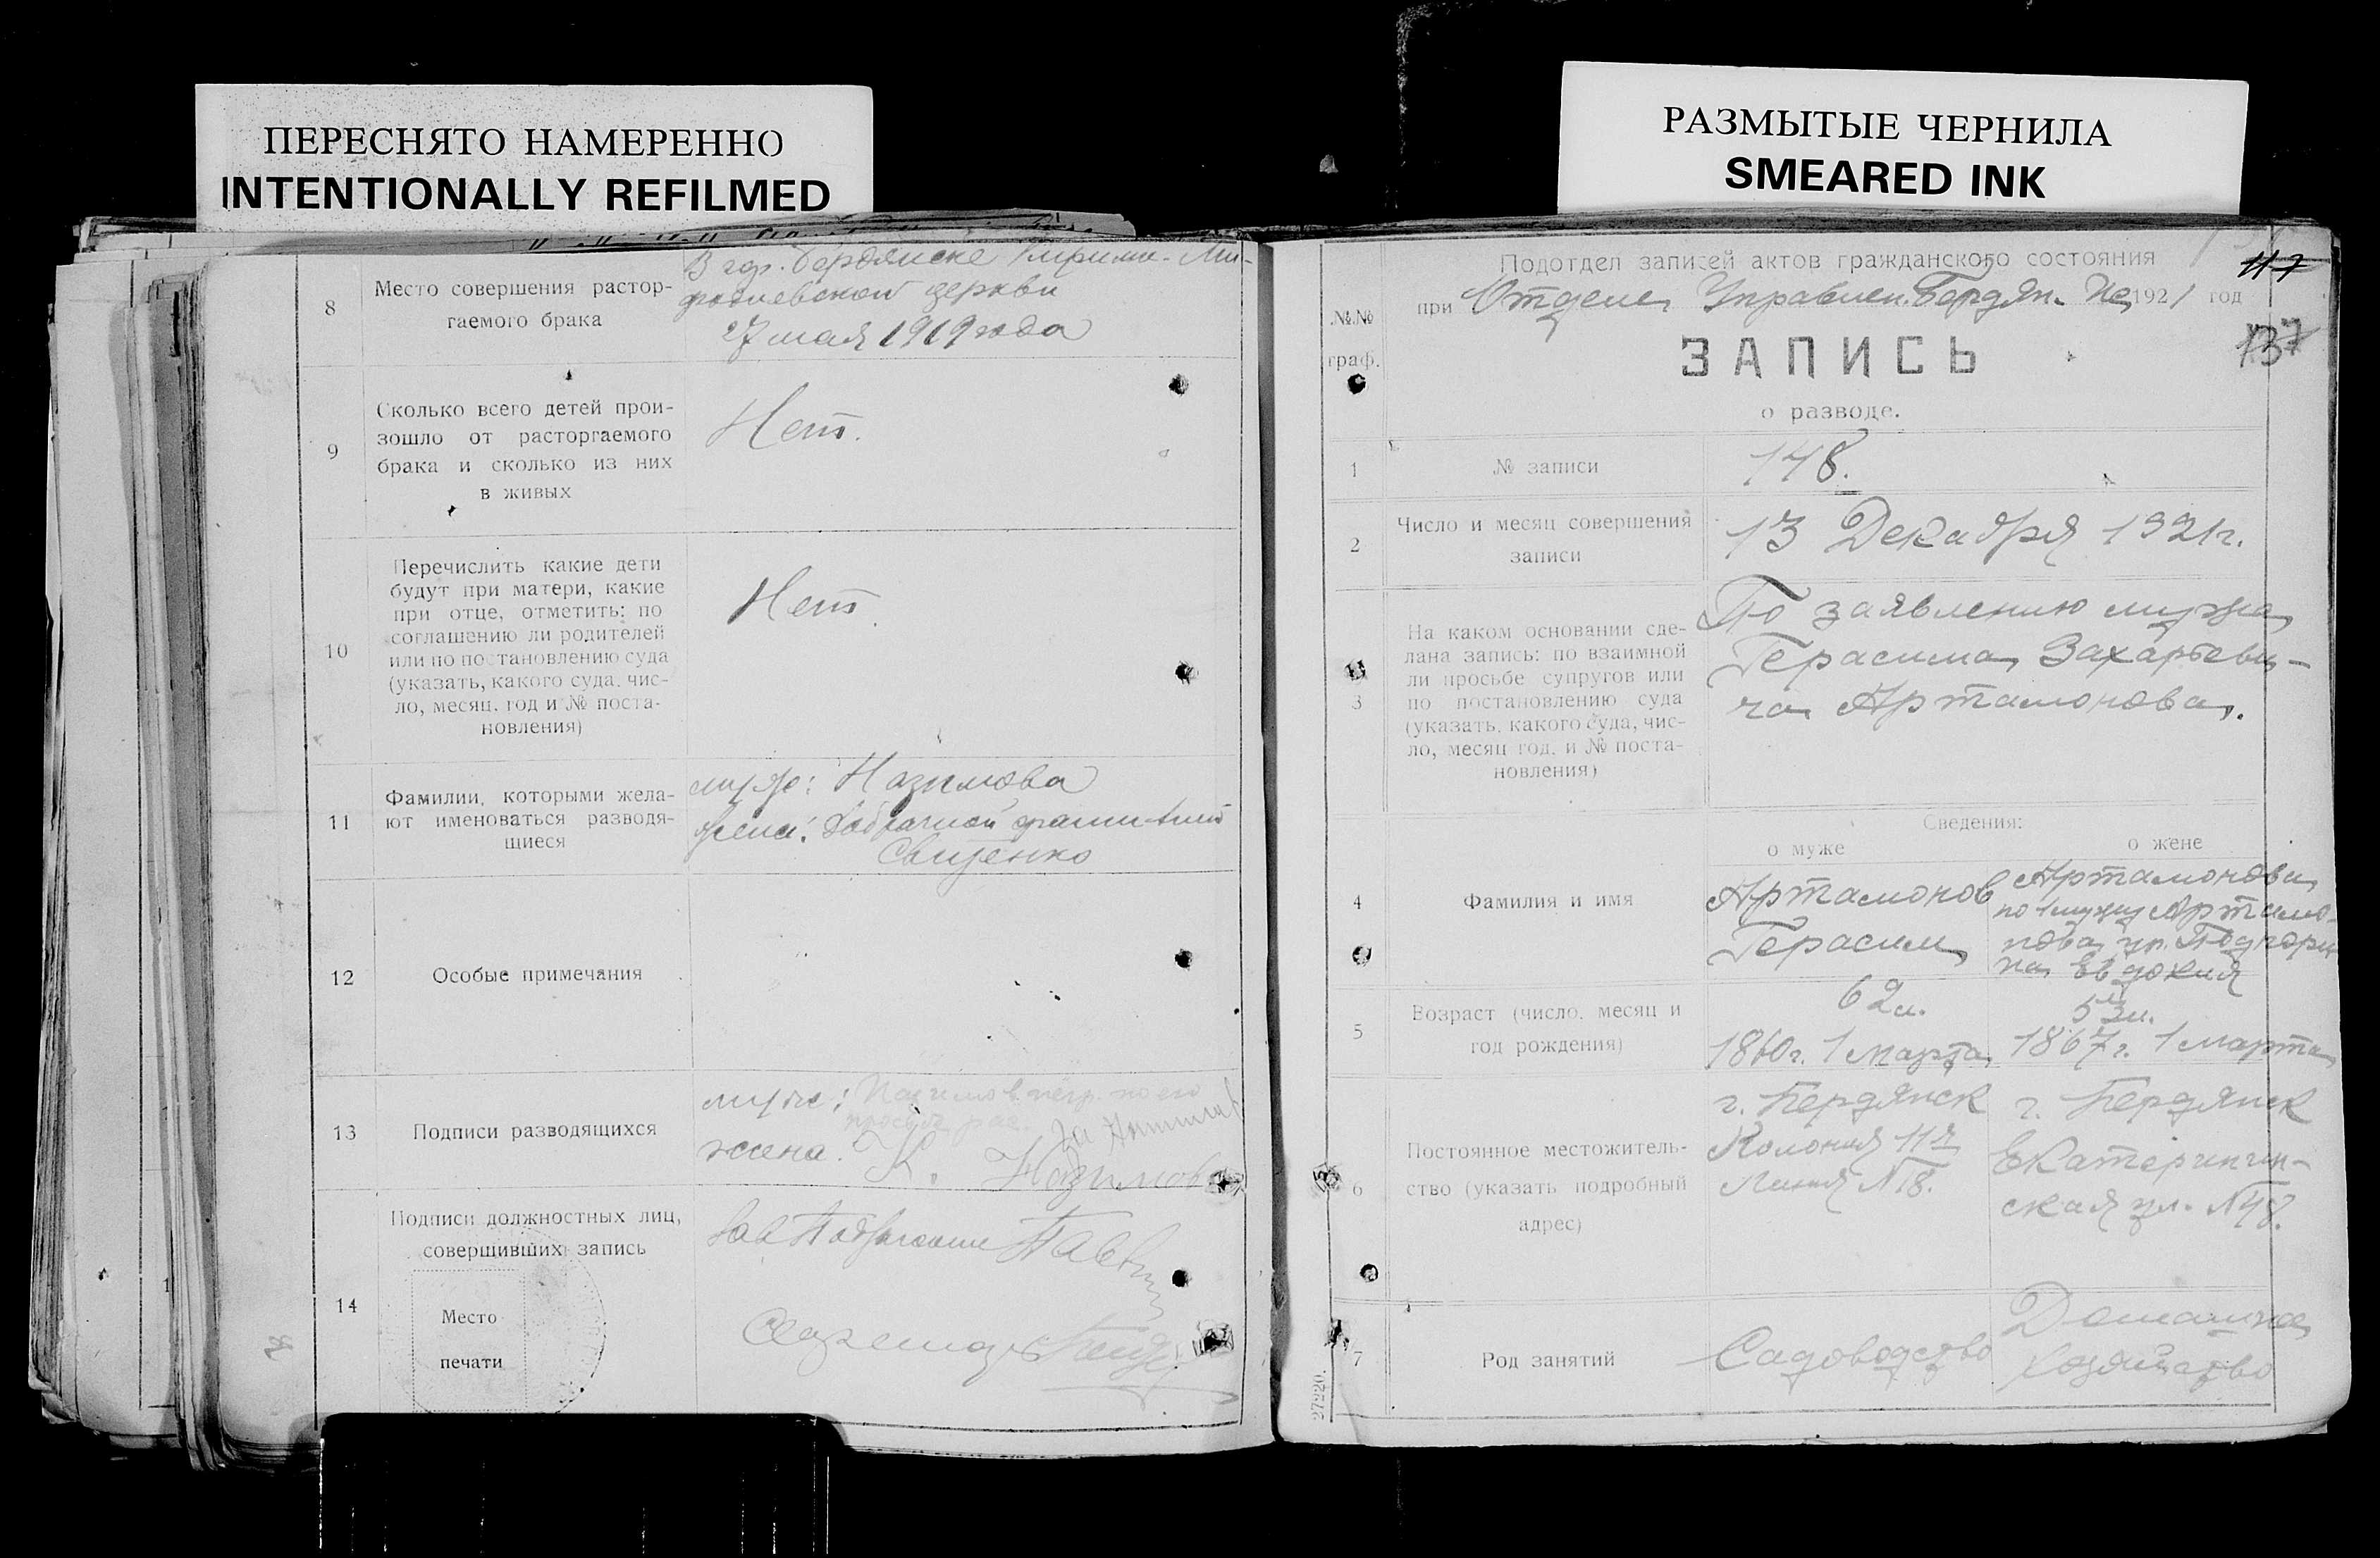 ПЕРЕСНЯТО НАМЕРЕННО
INTENTIONALLY REFILMED
РАЗМЫТЫЕ ЧЕРНИЛА
SMEARED INK
8
Место совершения растор-
гаемого брака
В гор. Бердянске
церкви
27 мая 1919 года
9
Сколько всего детей прои-
зошло от расторгаемого
брака и сколько из них
в живых
Нет.
10
Перечислить какие дети
будут при матери, какие
при отце, отметить: по
соглашению ли родителей
или по постановлению суда
(указать, какого суда, чис-
ло, месяц, год и № поста-
новления)
Нет.
11
Фамилии, которыми жела-
ют именоваться разводя-
щиеся
муж: Назимова
жена: добрачной фамилией
Свищенко
12
Особые примечания
13
Подписи разводящихся
муж:
жена. К. Назимова
14
Подписи должностных лиц,
совершивших запись
Место
печати
Зав Подотделом
Секретарь
117
137
№№
граф.
Подотдел записей актов гражданского состояния
при Отделе Управлен. Бердян. 1921 год
ЗАПИСЬ
о разводе.
1
№ записи
148.
2
Число и месяц совершения
записи
13 Декабря 1921г.
3
На каком основании сде-
лана запись: по взаимной
ли просьбе супругов или
по постановлению суда
(указать, какого суда, чис-
ло, месяц год, и № поста-
новления)
По заявлению мужа
Герасима Захарьеви-
ча Артамонова.
Сведения:
о муже
о жене
4
Фамилия и имя
Артамонов
Герасим
Артамонова
по мужу Артамо-
нова
на Евдокия
5
Возраст (число, месяц и
год рождения)
62 л.
1860г. 1 марта
53 л.
1867г. 1 марта
6
Постоянное местожитель-
ство (указать подробный
адрес)
г. Бердянск
Колония 11я
Линия №18.
г. Бердянск
Екатеринин-
ская ул. №48.
7
Род занятий
Садоводство
Домашнее
хозяйство
27220.